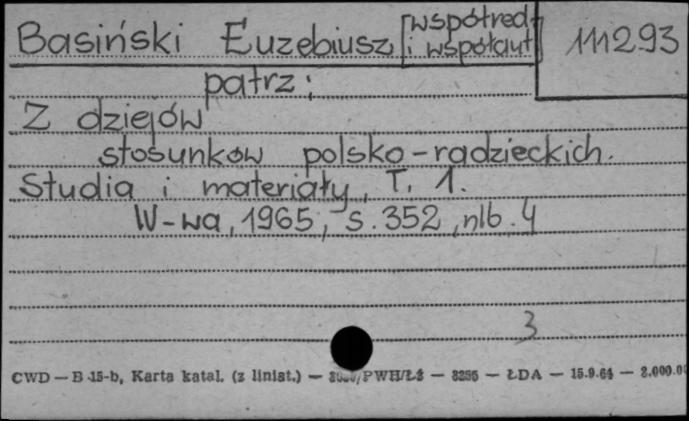 Basiński Euzebiusz [współred. i współaut] 111293
patrz:
Z dziejów
stosunków polsko-radzieckich.
Studia i materiały, T. 1.
W-wa, 1965, s. 352, nlb. 4
3
CWD — B-15-b, Karta katal. (z liniat.) — /PWH/Ł3 — 3295 — ŁDA — 15.9.64 —